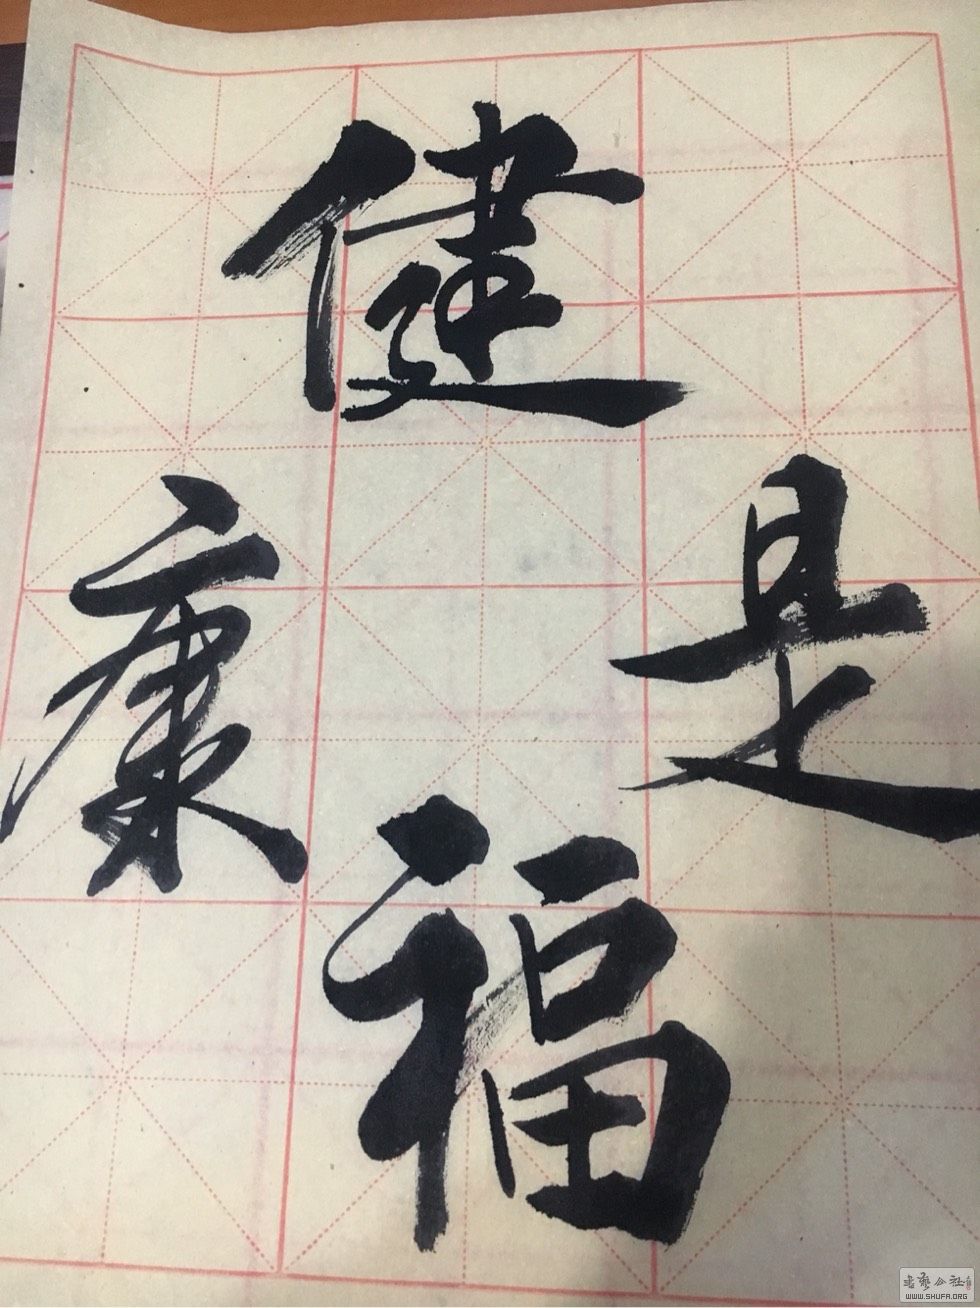 健
康
是
福
書藝公社
WWW.SHUFA.ORG